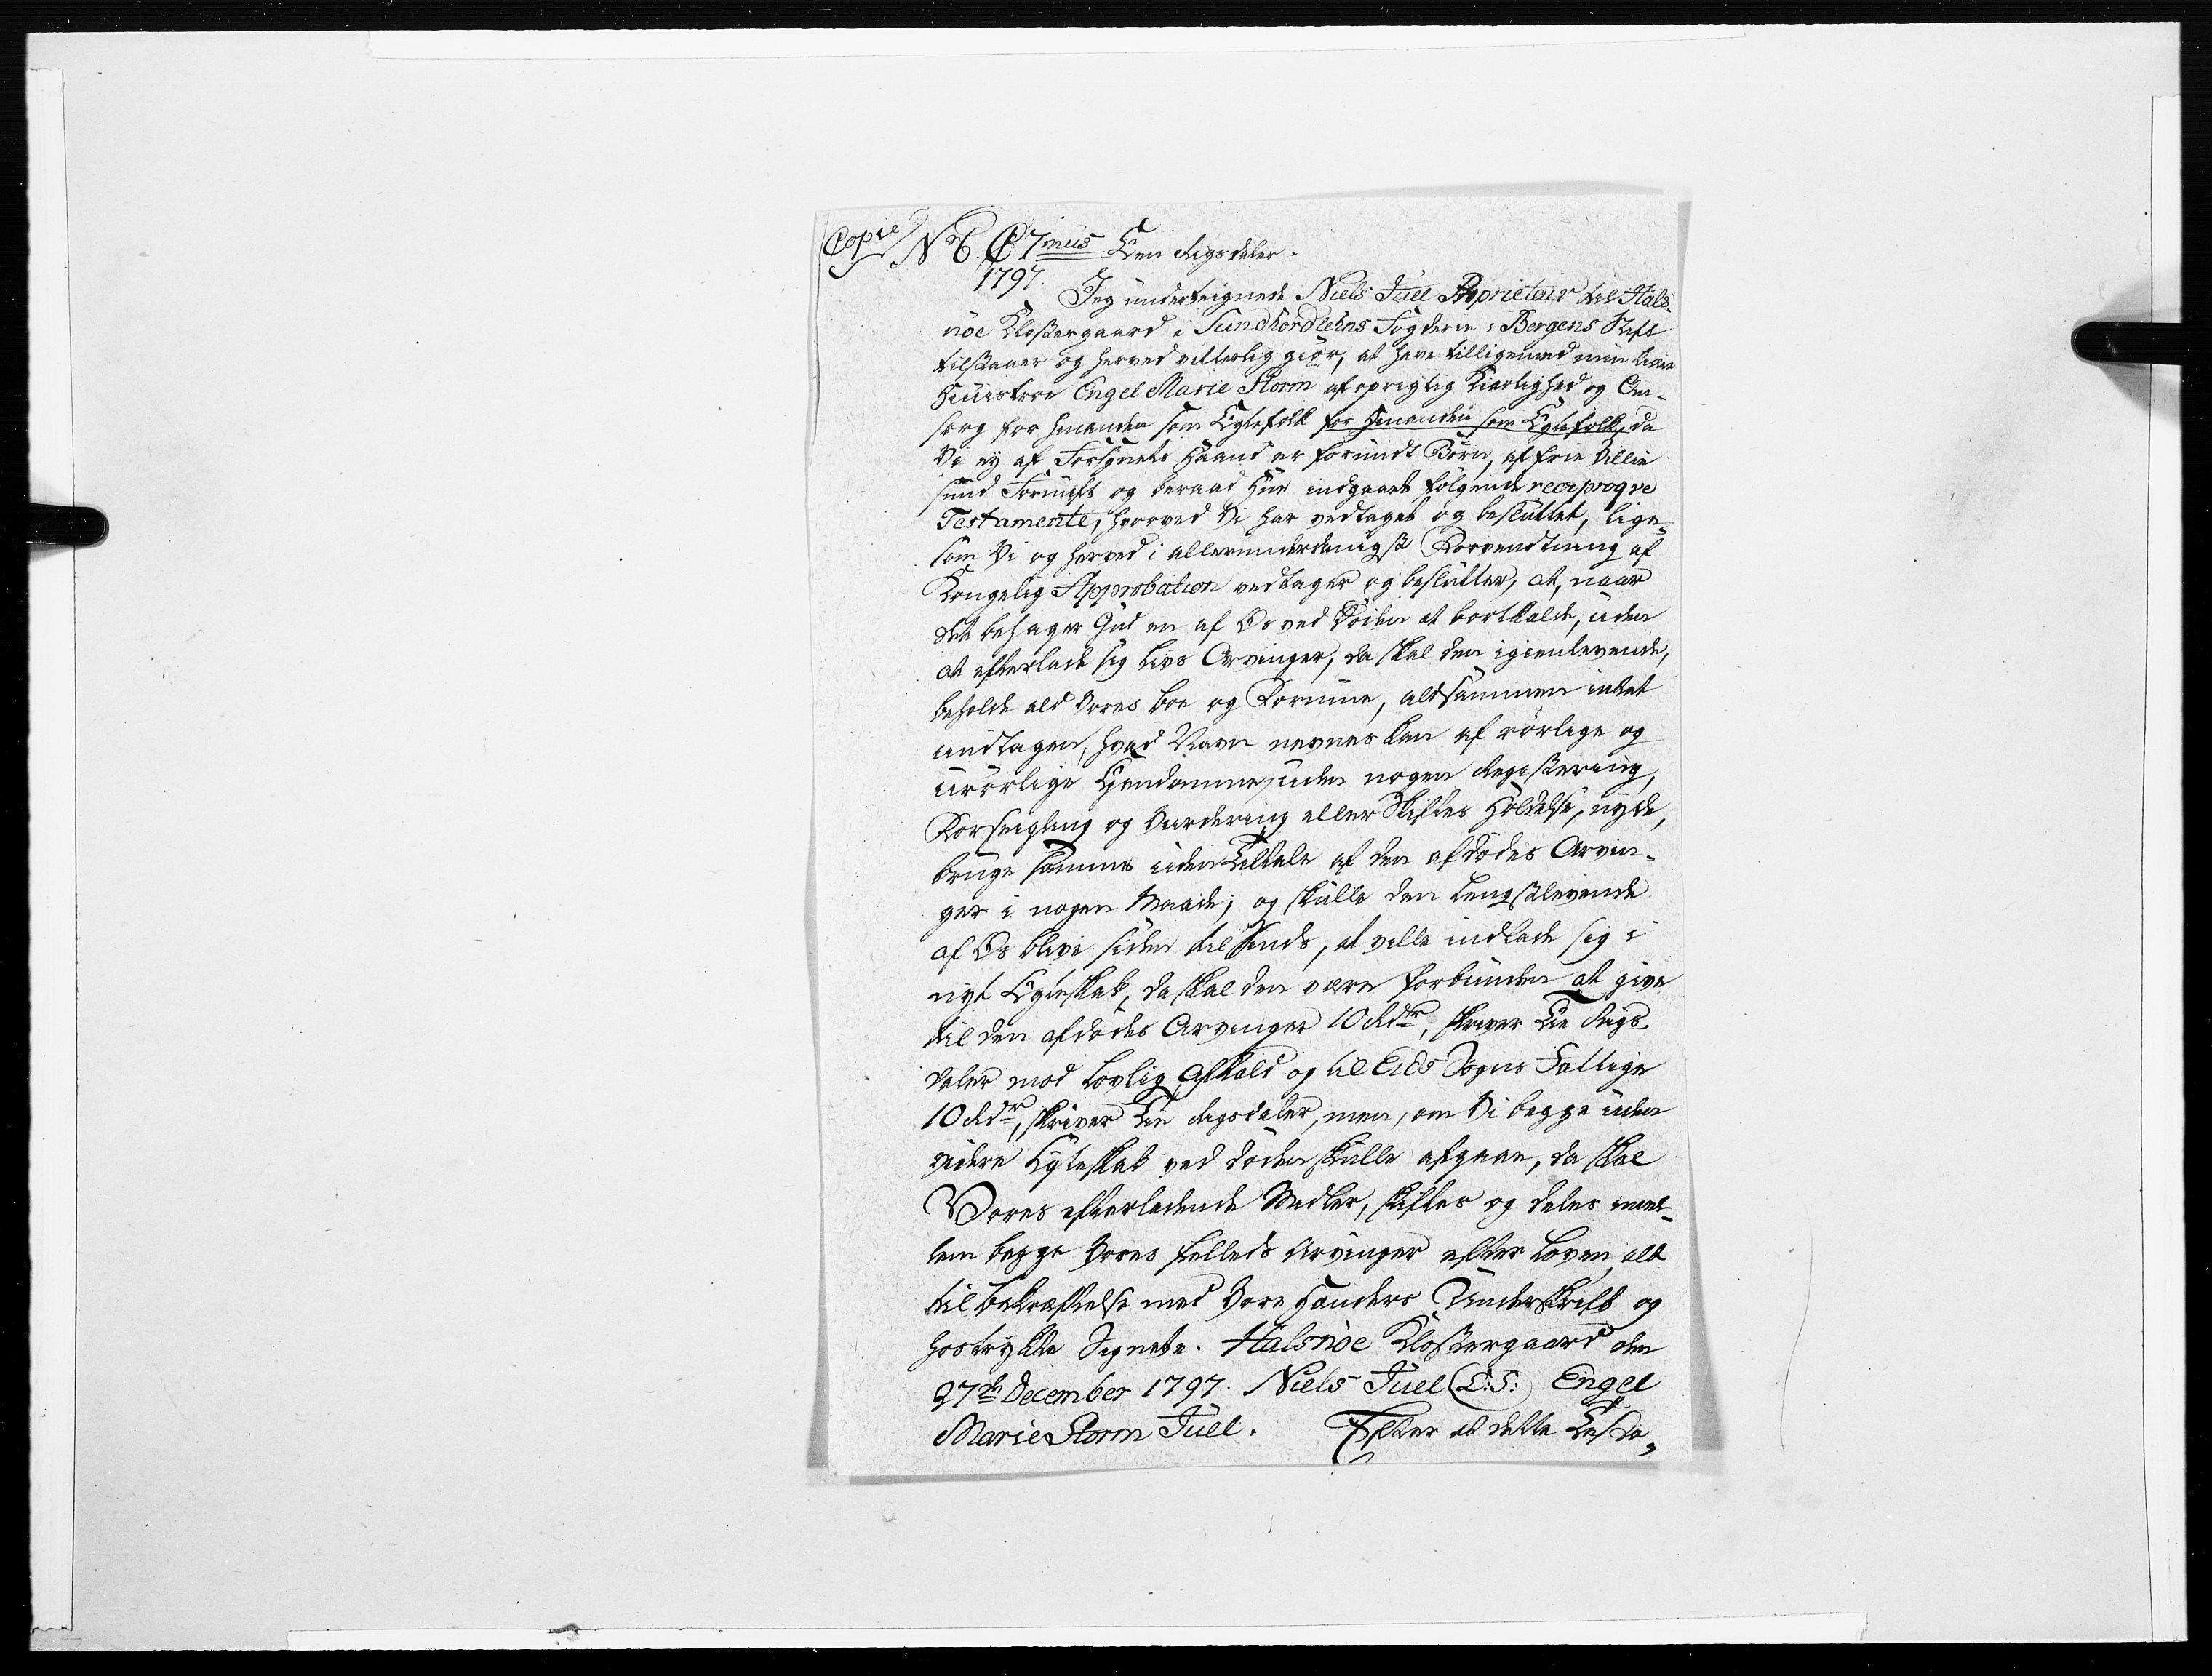 Copie No 6. C 7mus Een Rigsdaler.
1797.
Jeg underteignede Niels Juel Proprietair til Hals-
nöe Klostergaard i Sundhordlehns Fogderie i Bergens Stift
tilstaaer og herved vitterlig giør, at have tilligemed min kiære
Huustroe Engel Marie Storm af oprigtig Kierlighed og Om-
sorg for hinanden som Egtefolk for hinanden som Egtefolk, da
Vi ej af Forsynets Haand er forundt Børn, af frie Villie
sund Fornuft og beraad Hue indgaaet følgende reciproqve
Testamente, hvorved Vi har vedtaget og besluttet, lige-
som Vi og herved i allerunderdanigst Forventning af
Kongelig Approbation vedtager og beslutter, at, naar
det behager Gud en af Os ved Døden at bortkalde, uden
at efterlade sig Livs Arvinger, da skal den igienlevende,
beholde ald Vores Boe og Formue, aldsammen intet
undtagen, hvad Navn nevnes kan af rørlige og
urørlige Ejendomme, uden nogen Registering,
Forseigling og Vurdering eller Skiftes Holdelse, nyde,
bruge samme uden Tiltale af den afdødes Arvin-
ger i nogen Maade; og skulle den Lengstlevende
af Os blive siden til Sinds, at ville indlade sig i
nyt Egteskab, da skal den være forbunden at give
til den afdødes Arvinger 10 Rdr, skriver Tie Rigs-
daler mod lovlig Afkald og til Eids Sogns Fattige
10 Rdr, skriver Tie Rigsdaler, men, om Vi begge uden
videre Egteskab ved Døden skulle afgaae, da skal
Vores efterladende Midler, skiftes og deles imel-
lem begge Vores fælleds Arvinger efter Loven, alt
til Bekræftelse med Vore Hænders Underskrift og
hostrykte Signete. Halsnöe Klostergaard den
27de December 1797. Niels Juel (L:S:) Engel
Marie Storm Juel. Efter at dette Testa-